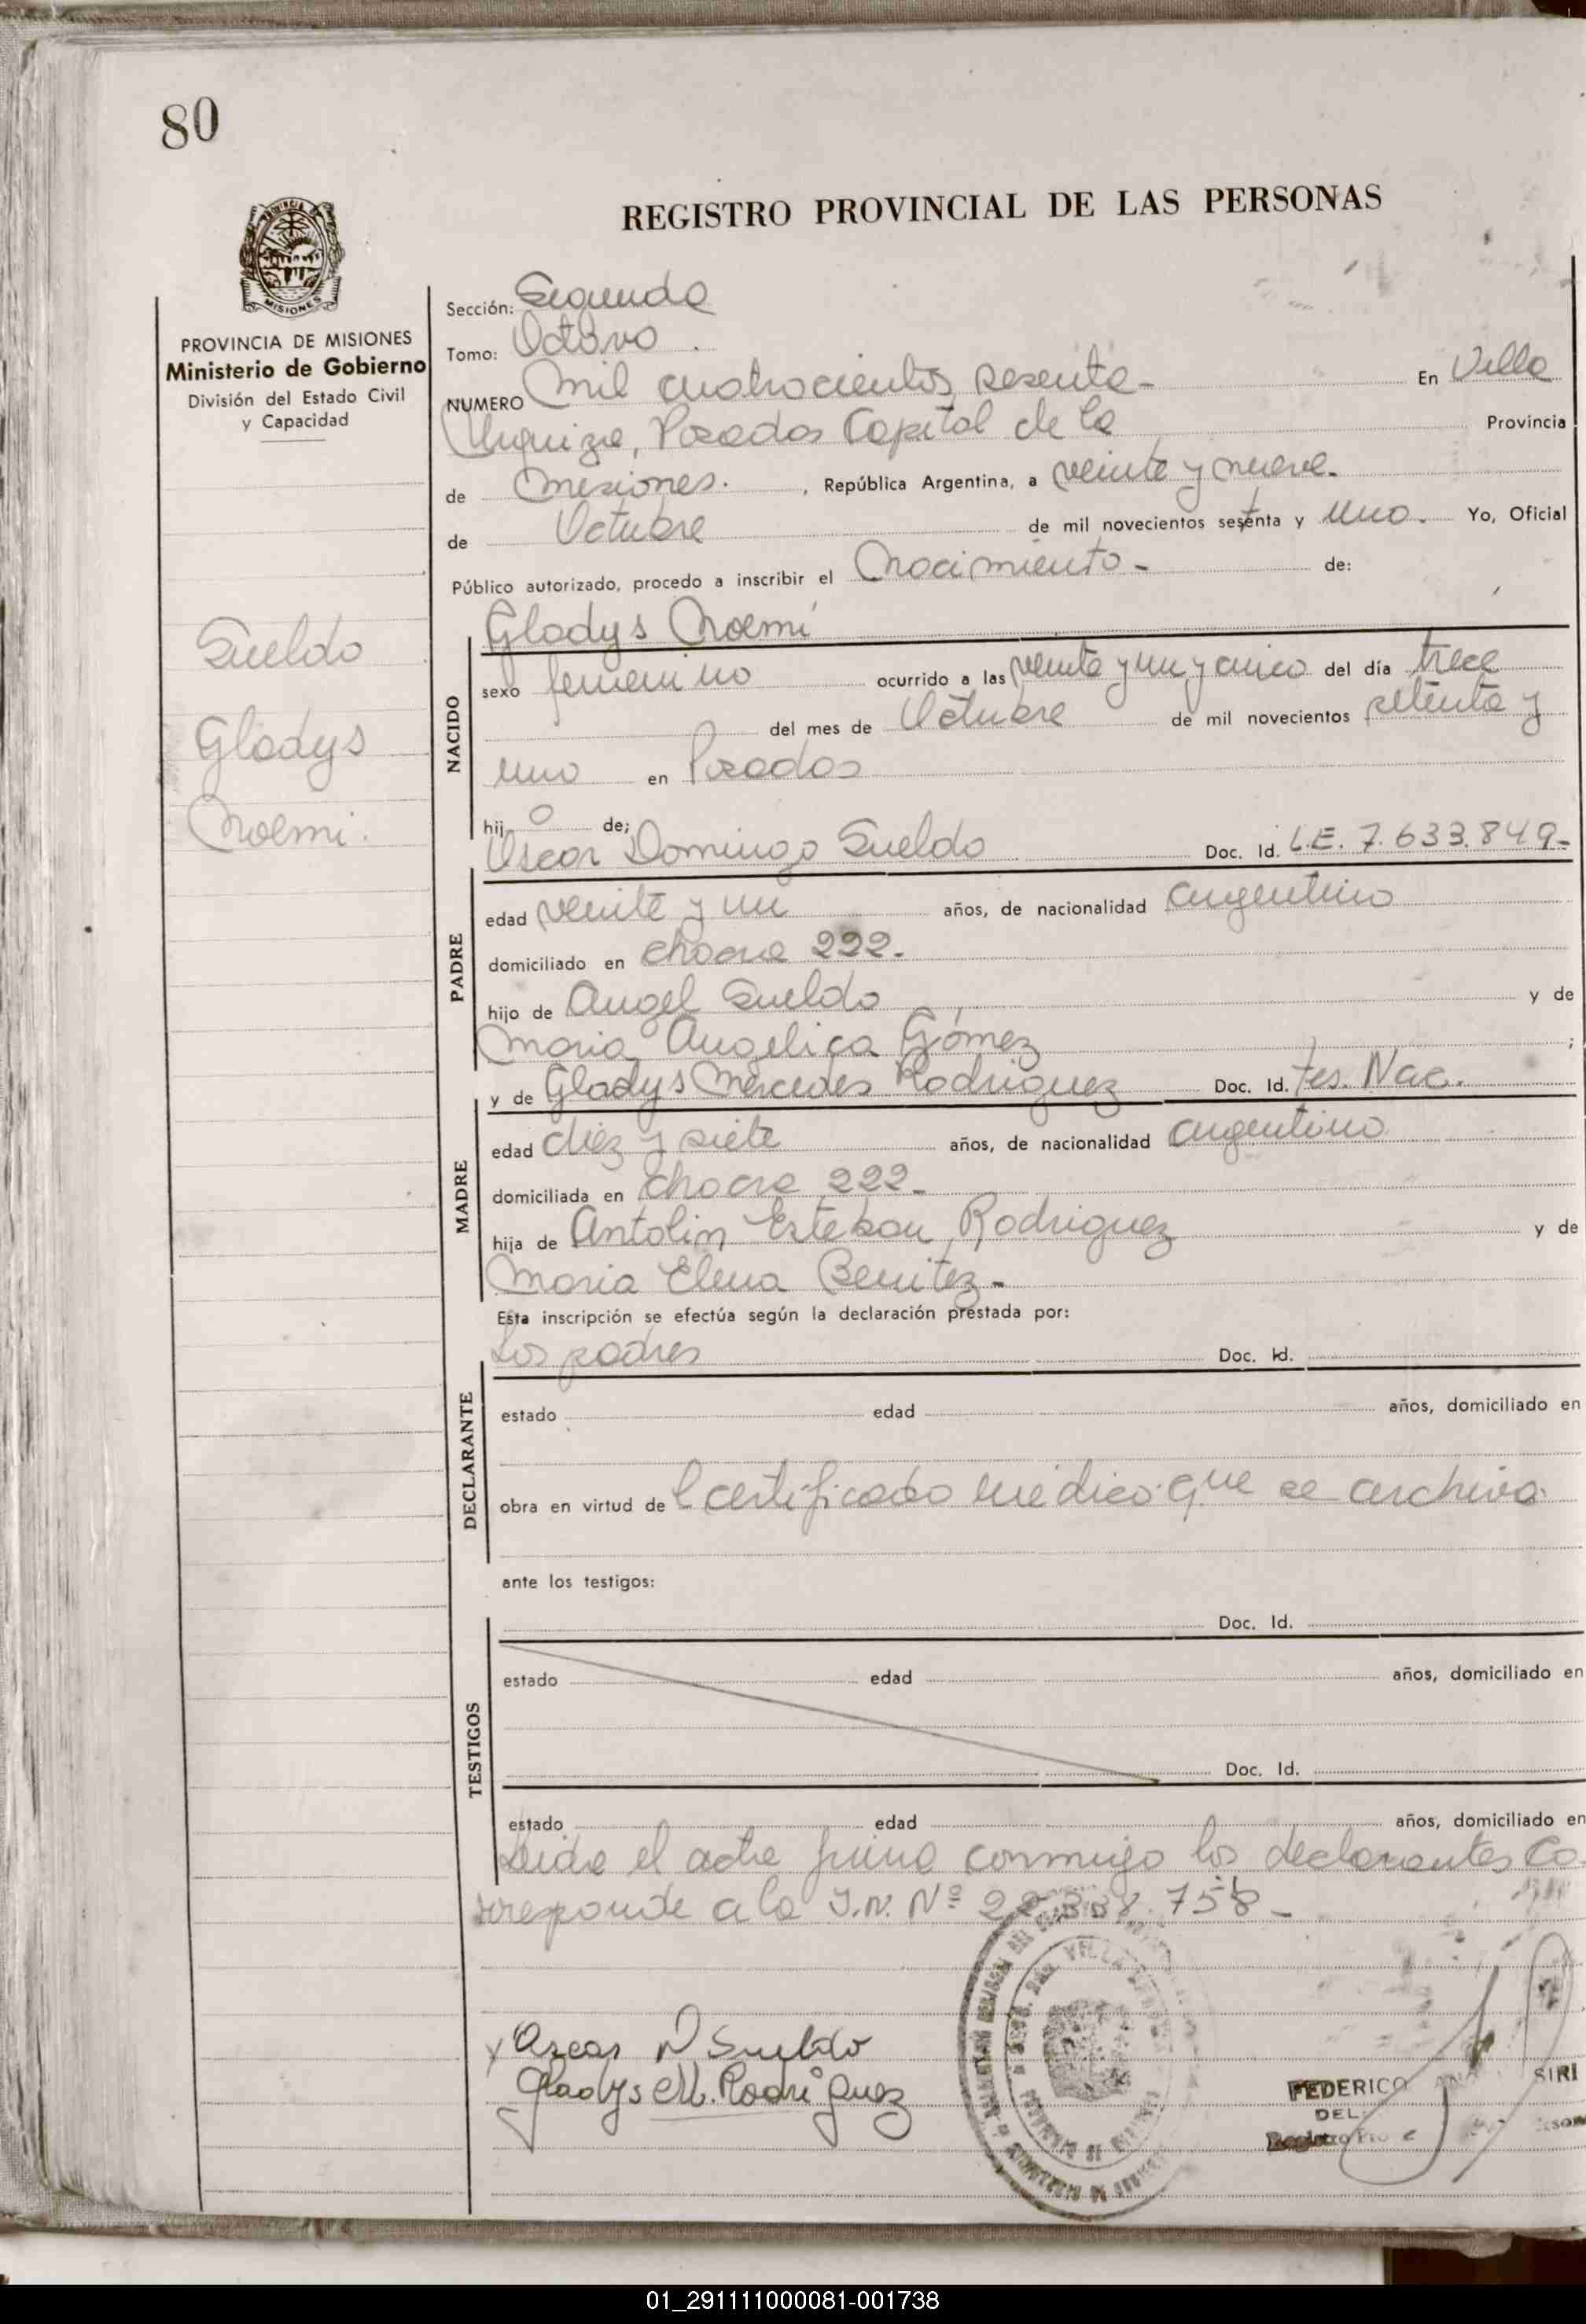 80
REGISTRO PROVINCIAL DE LAS PERSONAS
MISIONES
PROVINCIA DE MISIONES
Ministerio de Gobierno
División del Estado Civil
y Capacidad
Sueldo
Gladys
Noemi.
Sección: Segunda
Tomo: Octavo.
NUMERO Mil cuatrocientos sesenta- En Villa
Urquiza, Posadas Capital de la Provincia
de Misiones. , República Argentina, a veinte y nueve-
de Octubre de mil novecientos setenta y uno. Yo, Oficial
Público autorizado, procedo a inscribir el Nacimiento- de:
NACIDO
Gladys Noemí
sexo femenino ocurrido a las veinte y un y cinco del día trece
del mes de Octubre de mil novecientos setenta y
uno en Posadas
hij de;
PADRE
Oscar Domingo Sueldo Doc. Id. L.E. 7.633.849-
edad veinte y un años, de nacionalidad argentino
domiciliado en chacra 222-
hijo de Angel Sueldo y de
Maria Angelica Gómez ;
MADRE
y de Gladys Mercedes Rodriguez Doc. Id. tes. Nac.
edad diez y siete años, de nacionalidad argentino
domiciliada en chacra 222-
hija de Antolin Esteban Rodriguez y de
Maria Elena Benitez-
Esta inscripción se efectúa según la declaración prestada por:
DECLARANTE
Los padres Doc. Id.
estado edad años, domiciliado en
obra en virtud de l certificado médico que se archiva.
ante los testigos:
TESTIGOS
Doc. Id.
estado edad años, domiciliado en
Doc. Id.
estado edad años, domiciliado en
Leida el acta firma conmigo los declarantes Co
rresponde a la I.N. Nº 22. .758-
Oscar D Sueldo
Gladys M. Rodriguez
FEDERICO SIRI
DEL
Registro
01_291111000081-001738